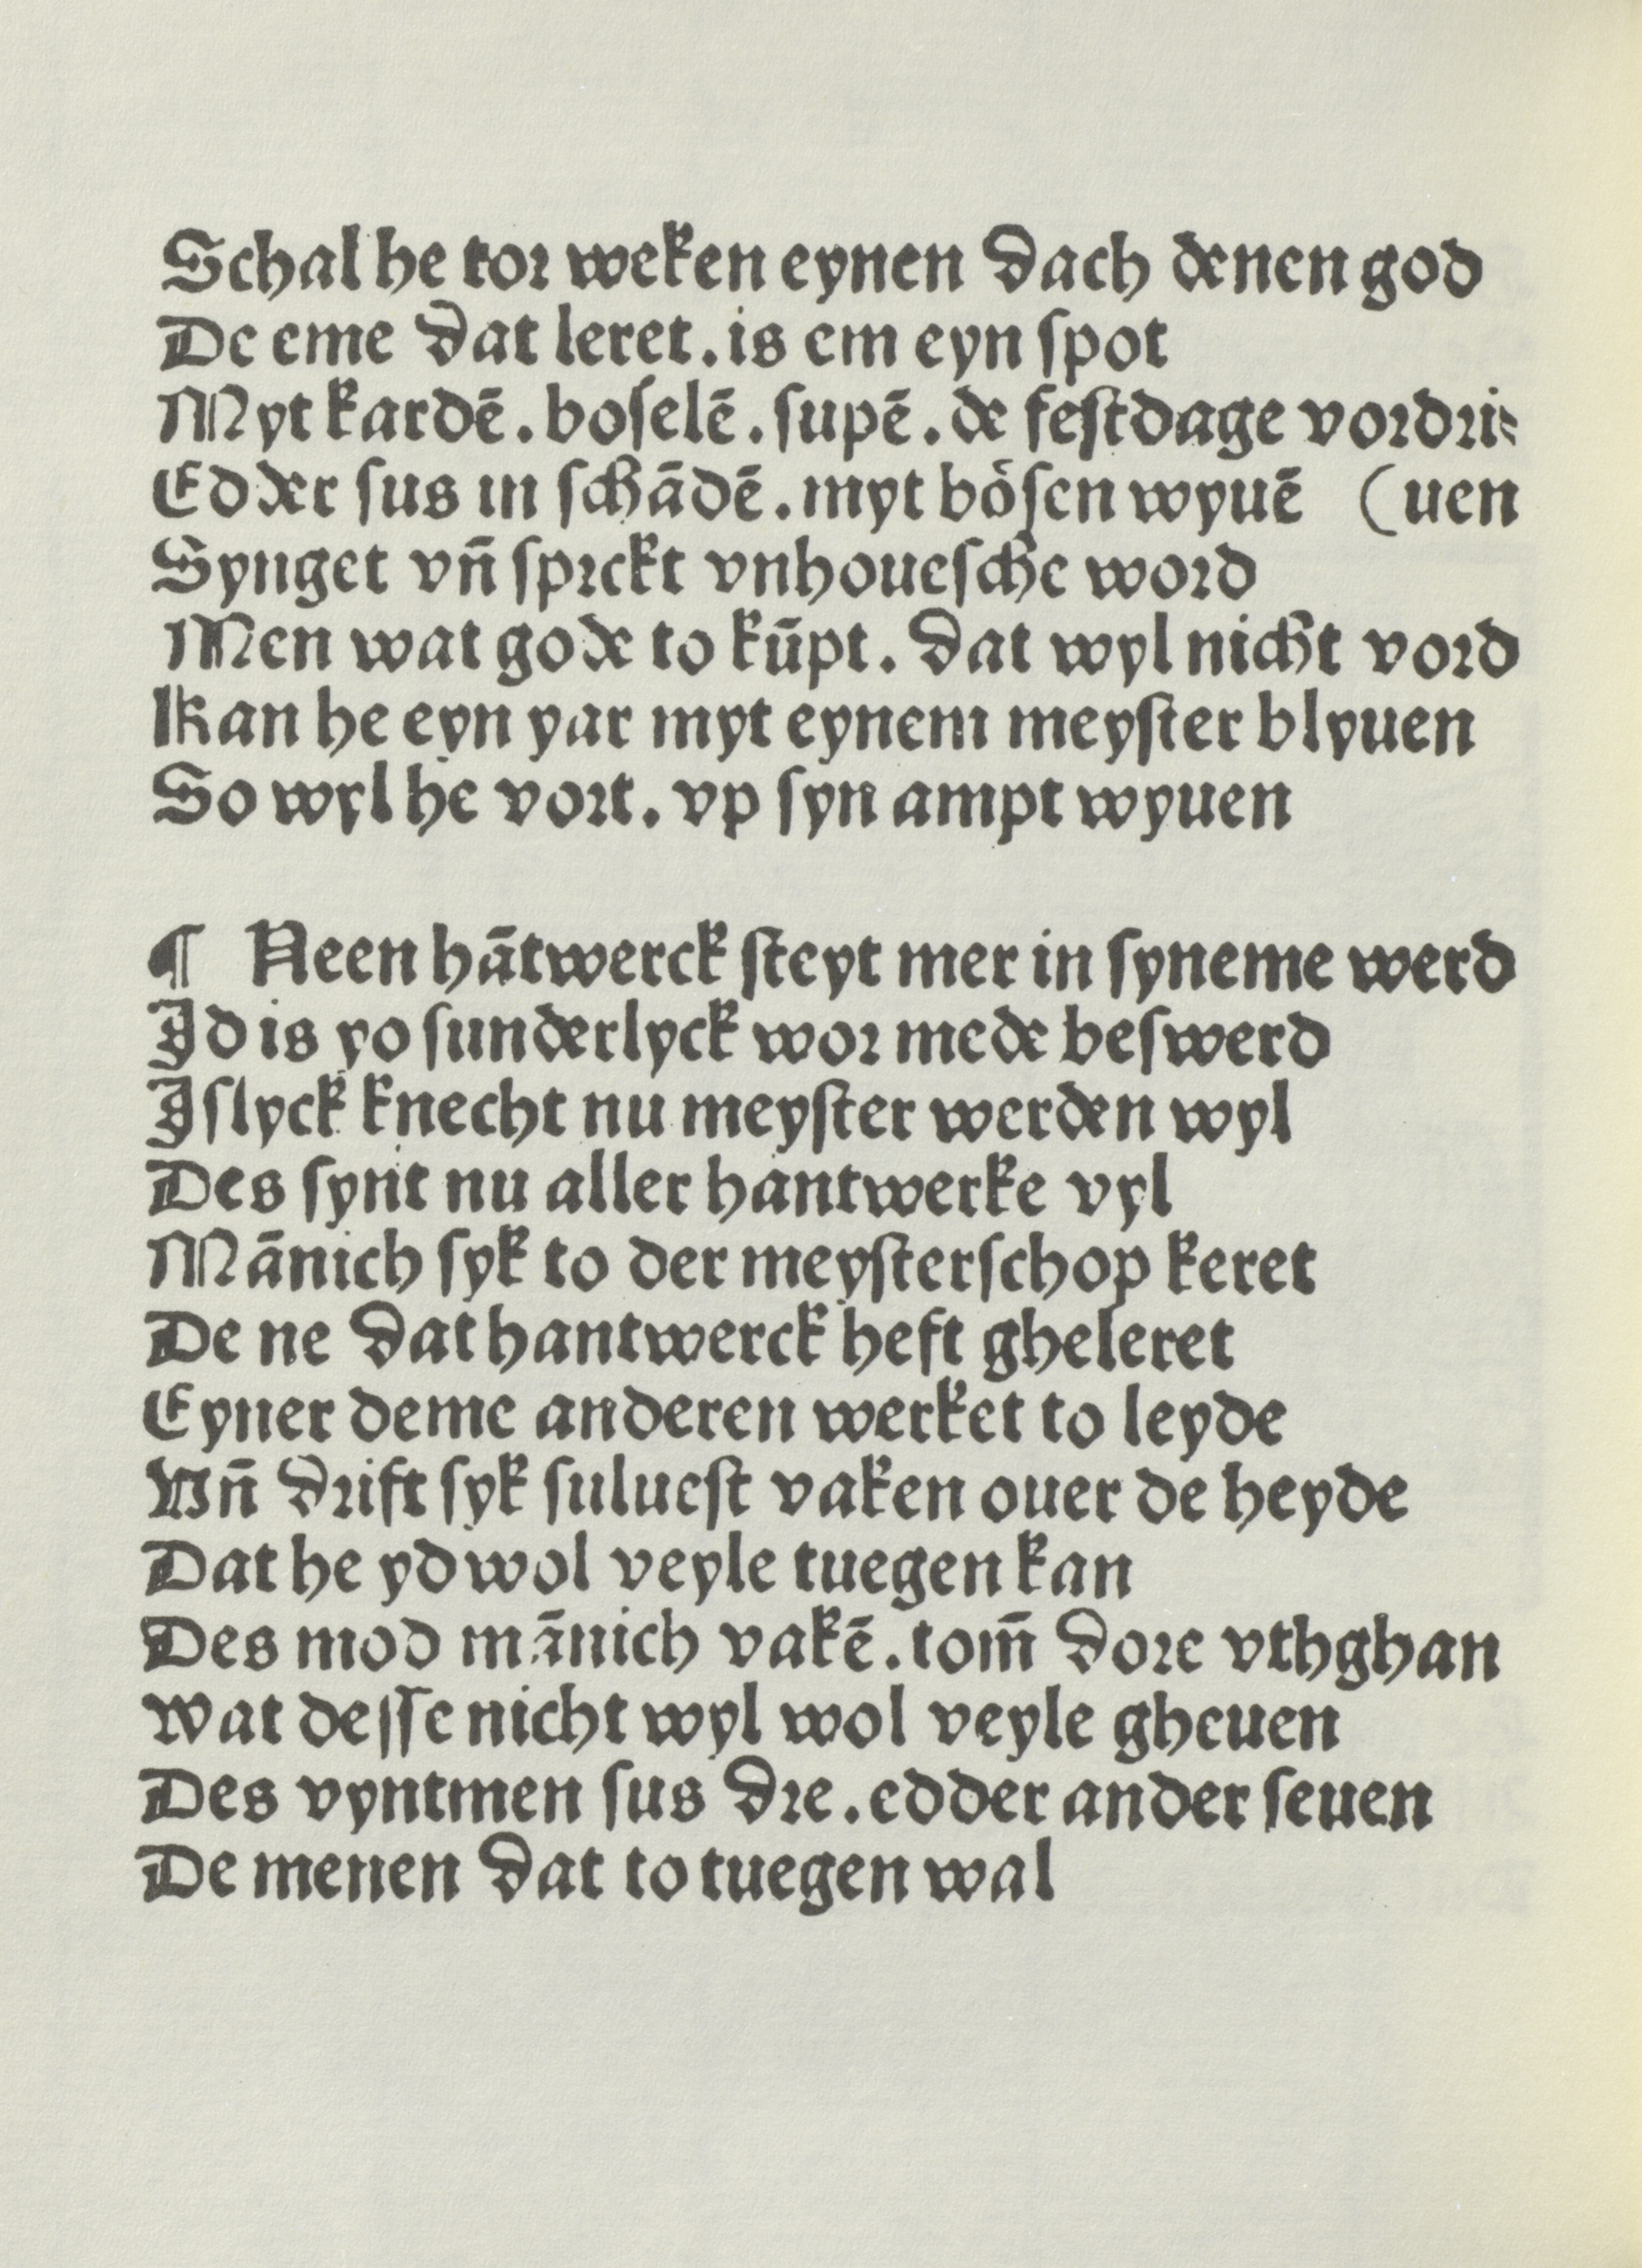 Schal he tor weken eynen dach denen god
De eme dat leret. is em eyn spot
Myt kardē. boselē. supē. de festdage vordri⸗
Edder sus in schādē. myt bösen wyuē (uen
Synget vn̄ sprekt vnhouesche word
Men wat gode to kūpt. dat wyl nicht vord
Kan he eyn yar myt eynem meyster blyuen
So wyl he vort. vp syn ampt wyuen
¶ Neen hātwerck steyt mer in syneme werd
Jd is yo sunderlyck wor mede beswerd
Jslyck knecht nu meyster werden wyl
Des synt nu aller hantwerke vyl
Mānich syk to der meysterschop keret
De ne dat hantwerck heft gheleret
Eyner deme anderen werket to leyde
Vn̄ drift syk suluest vaken ouer de heyde
Dat he yd wol veyle tuegen kan
Des mod mānich vakē. tom̄ dore vthghan
Wat desse nicht wyl wol veyle gheuen
Des vyntmen sus dre. edder ander seuen
De menen dat to tuegen wal